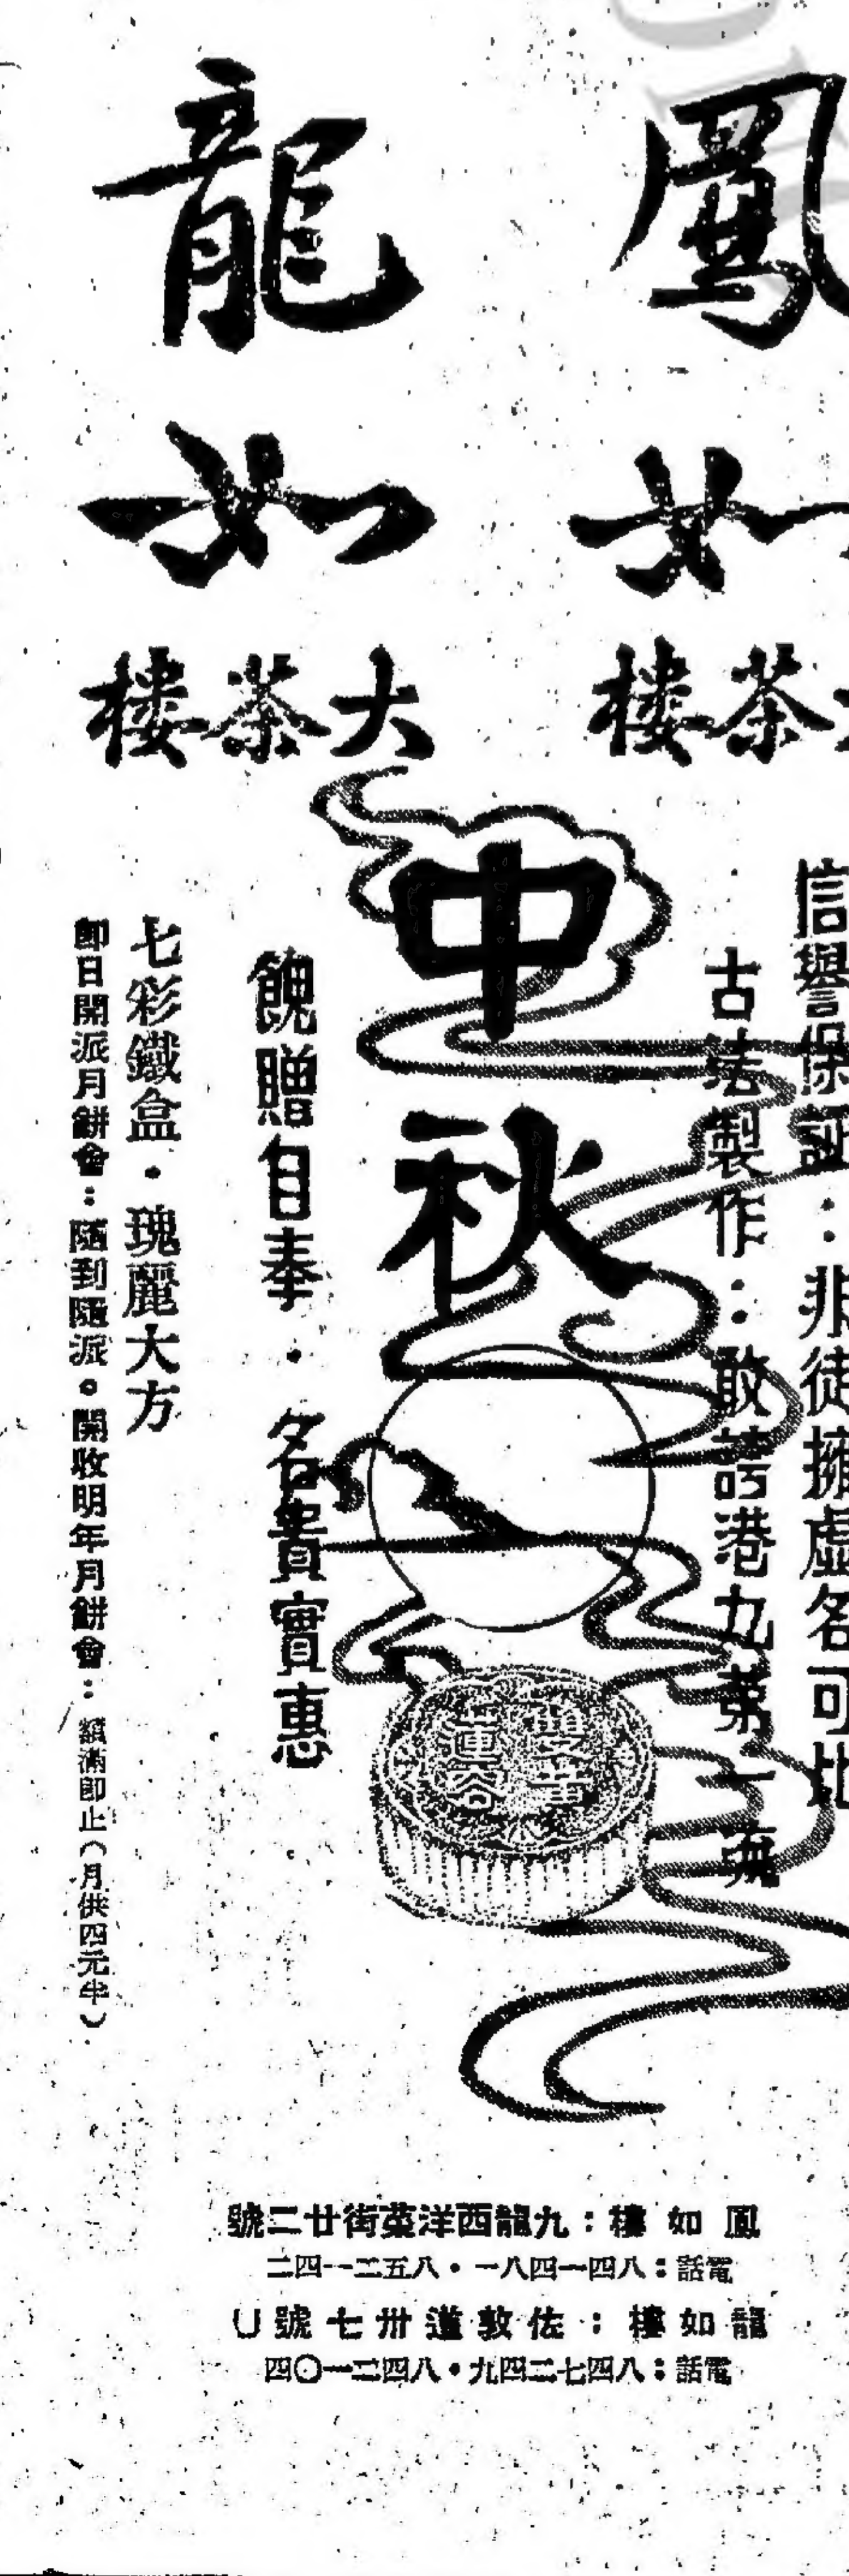 鳳如
大茶樓
龍如
大茶樓
信譽保証：非徒擁虛名可比
古法製作：敢誇港九第一流
中秋
雙黃
蓮蓉
餽贈自奉·名貴實惠
七彩鐵盒·瑰麗大方
即日開派月餅會：隨到隨派。開收明年月餅會：額滿即止（月供四元半）
鳳如樓：九龍西洋菜街廿二號
電話：八四一四八一·八五二一四二
龍如樓：佐敦道卅七號U
電話：八四七二四九·八四二一〇四